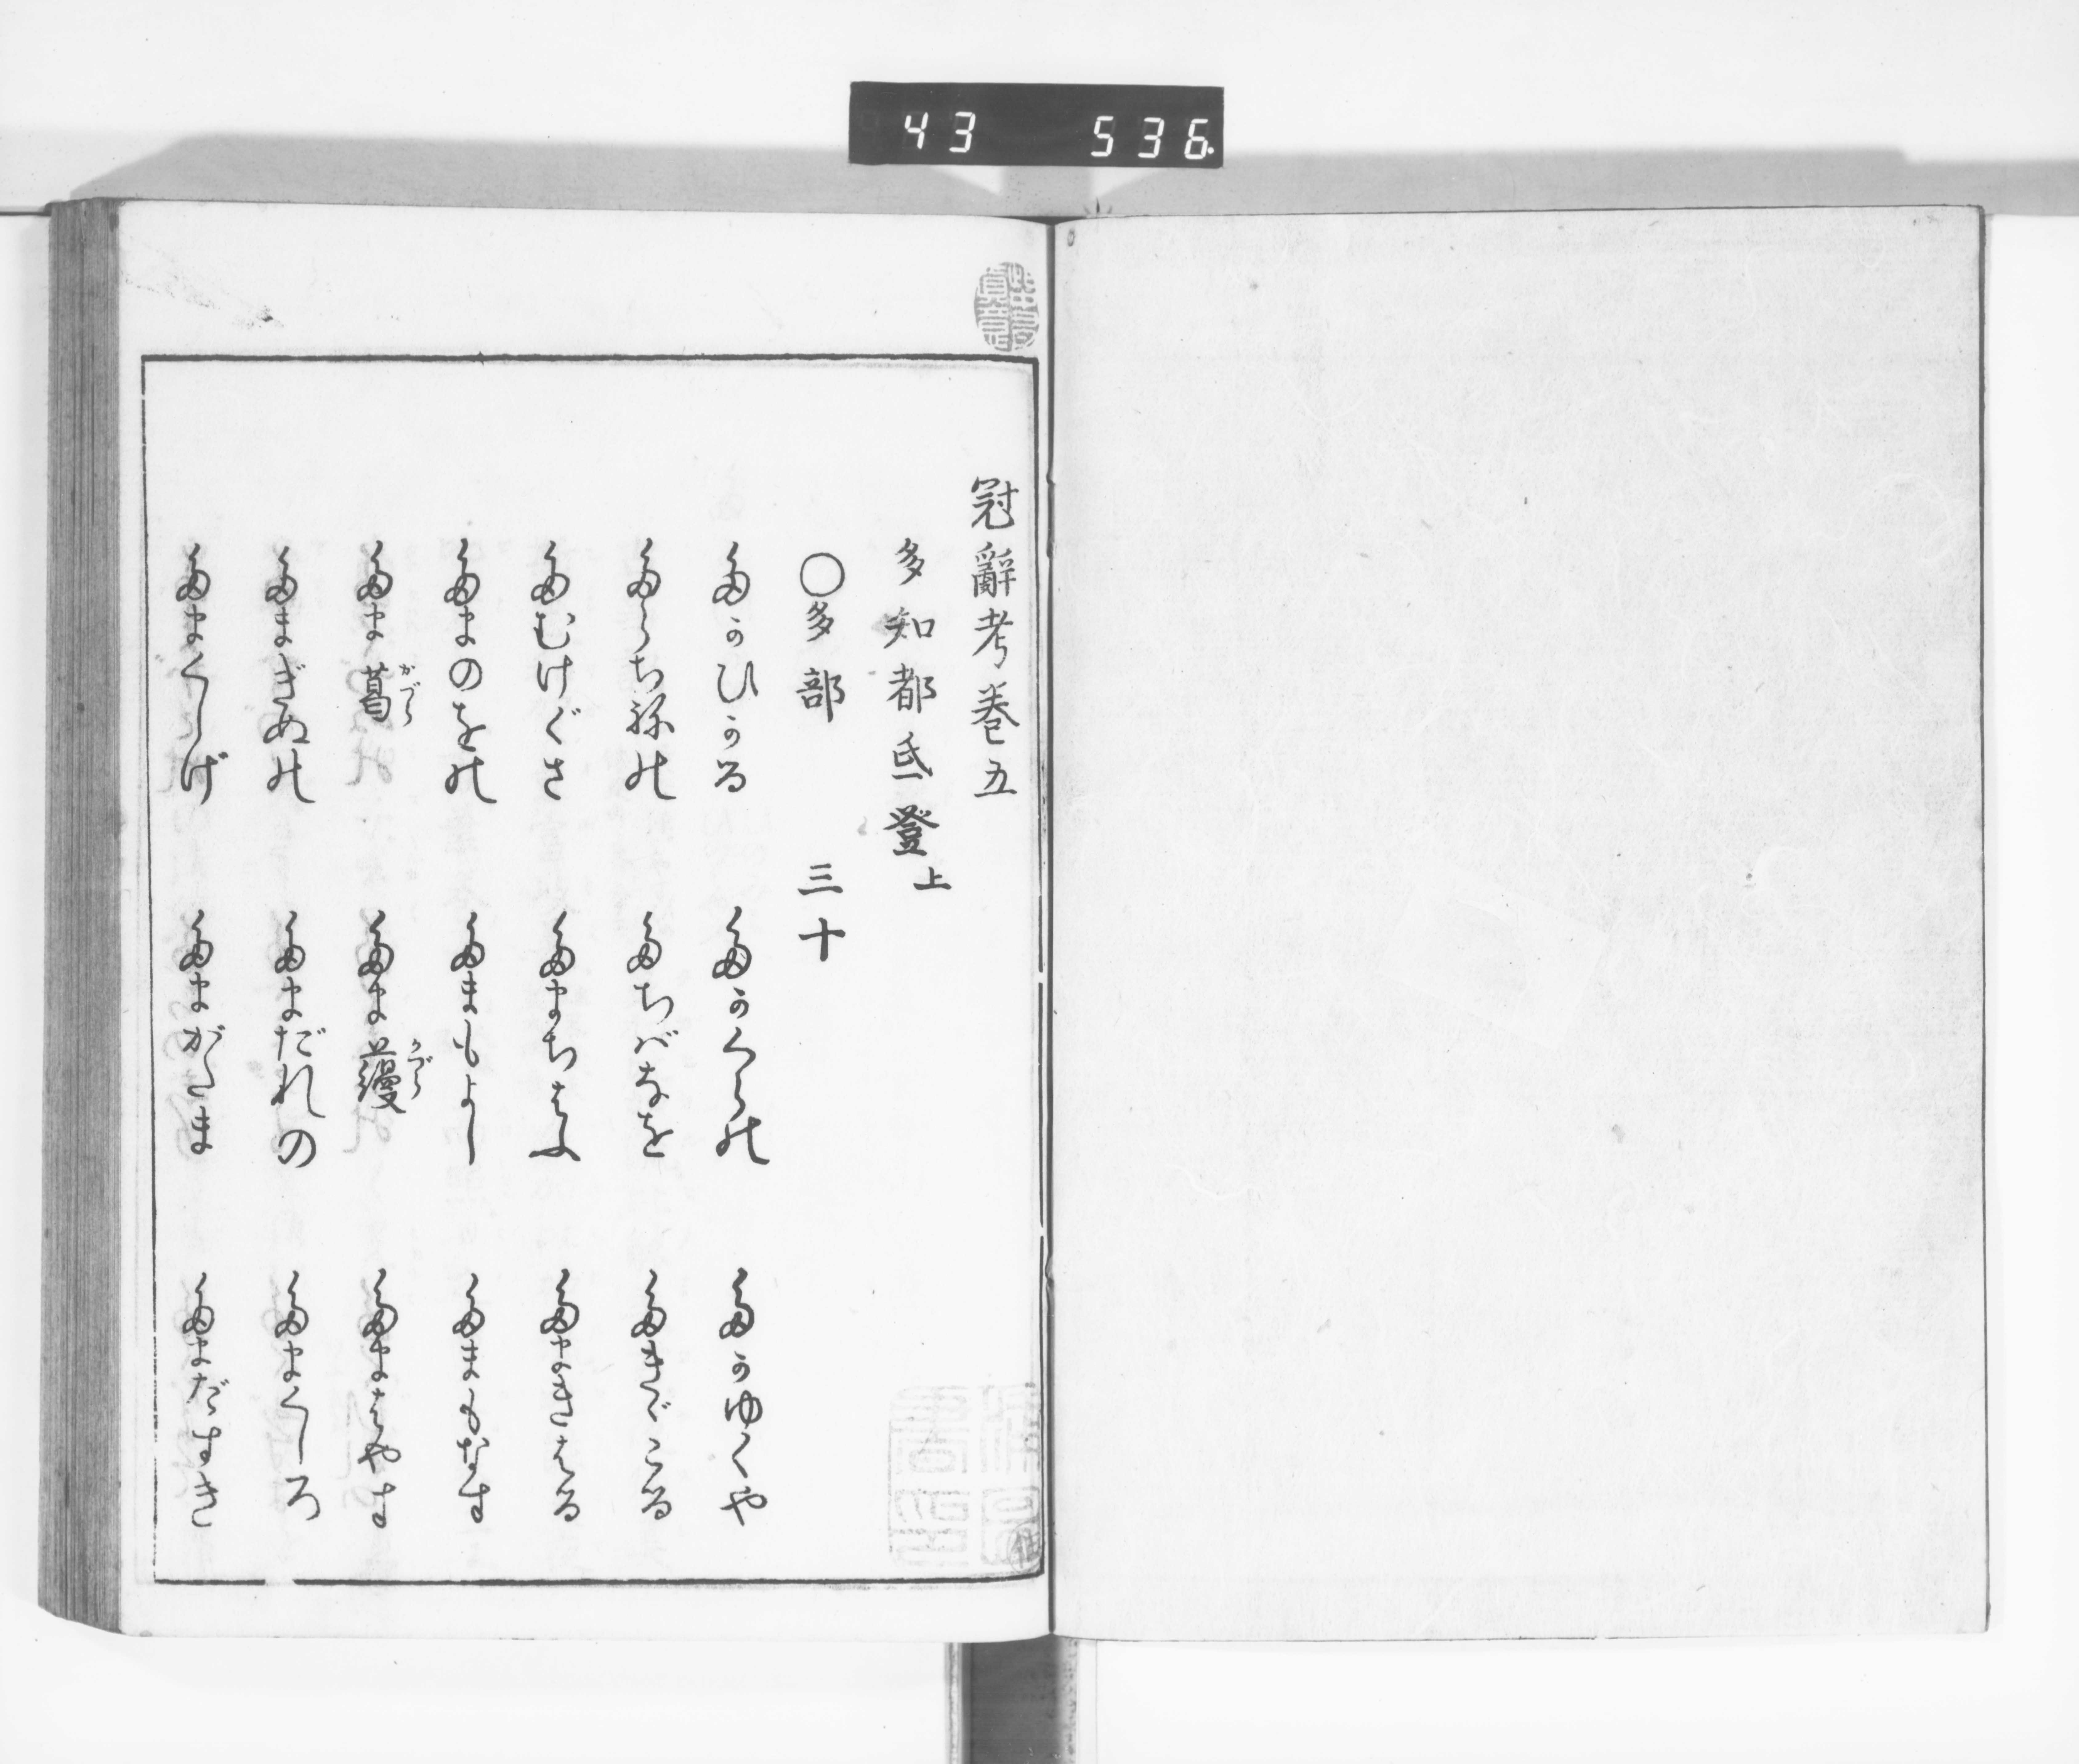 43 536
冠辭考巻五
多知都氐登上
○多部 三十
たかひかる たかくらの たかゆくや
たらちねの たちばなを たきゞこる
たむけぐさ たまちはふ たまきはる
たまのをの たまもよし たまもなす
たま葛かづら たま蘰かづら たまはやす
たまぎぬの たまだれの たまくしろ
たまくしげ たまがつま たまだすき